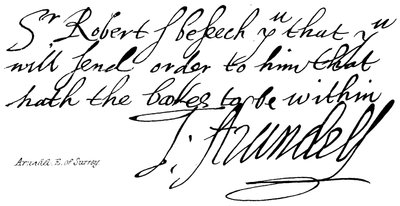 Sr Robert I beseech yu that yu
will send order to him that
hath the bookes to be within
T: Arundell
Arundel E. of Surrey